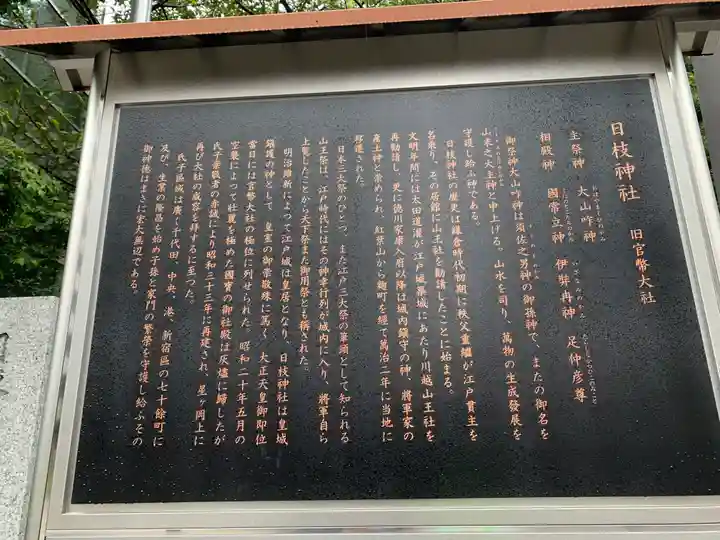 日枝神社 旧官幣大社
主祭神 大山咋神
相殿神 國常立神 伊弉冉神 足仲彦尊
御祭神大山咋神は須佐之男神の御孫神で、またの御名を
山末之大主神と申上げる。山水を司り、萬物の生成發展を
守護し給ふ神である。
日枝神社の歴史は鎌倉時代初期に秩父重繼が江戸貫主を
名乗り、その居館に山王社を勧請したことに始まる。
文明年間には太田道灌が江戸城築城にあたり川越山王社を
再勧請し、更に徳川家康入府以降は城内鎮守の神、將軍家の
産土神と崇められ、紅葉山から麹町を經て萬治二年に当地に
遷された。
日本三大祭のひとつ、また江戸三大祭の筆頭として知られる
山王祭は、江戸時代には王の神幸行列が城内に入り、將軍自ら
上覧したことから天下祭また御用祭とも稱された。
明治維新によつて江戸城は皇居となり、日枝神社は皇城
鎮護の神として、皇室の御崇敬殊に篤く、大正天皇御即位
当日には官幣大社の極位に列せられた。昭和二十年五月の
空襲によつて壮麗を極めた國寶の御社殿は灰燼に歸したが
氏子崇敬者の赤誠により昭和三十三年に再建され、星ヶ岡上に
再び大社の威容を拝するに至つた。
氏子區域は廣く千代田、中央、港、新宿區の七十餘町に
及び、生業の隆昌を始め子孫と家門の繁榮を守護し給ふその
御神徳はまさに宏大無辺である。